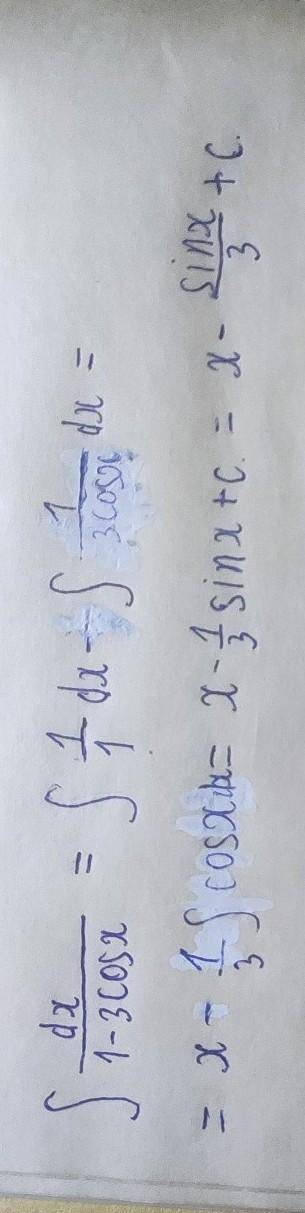 ∫ dx/(1-3cosx) = ∫ 1/1 dx - ∫ 1/(3cosx) dx =
= x - 1/3 ∫ cosx dx = x - 1/3 sinx + c = x - sinx/3 + c.